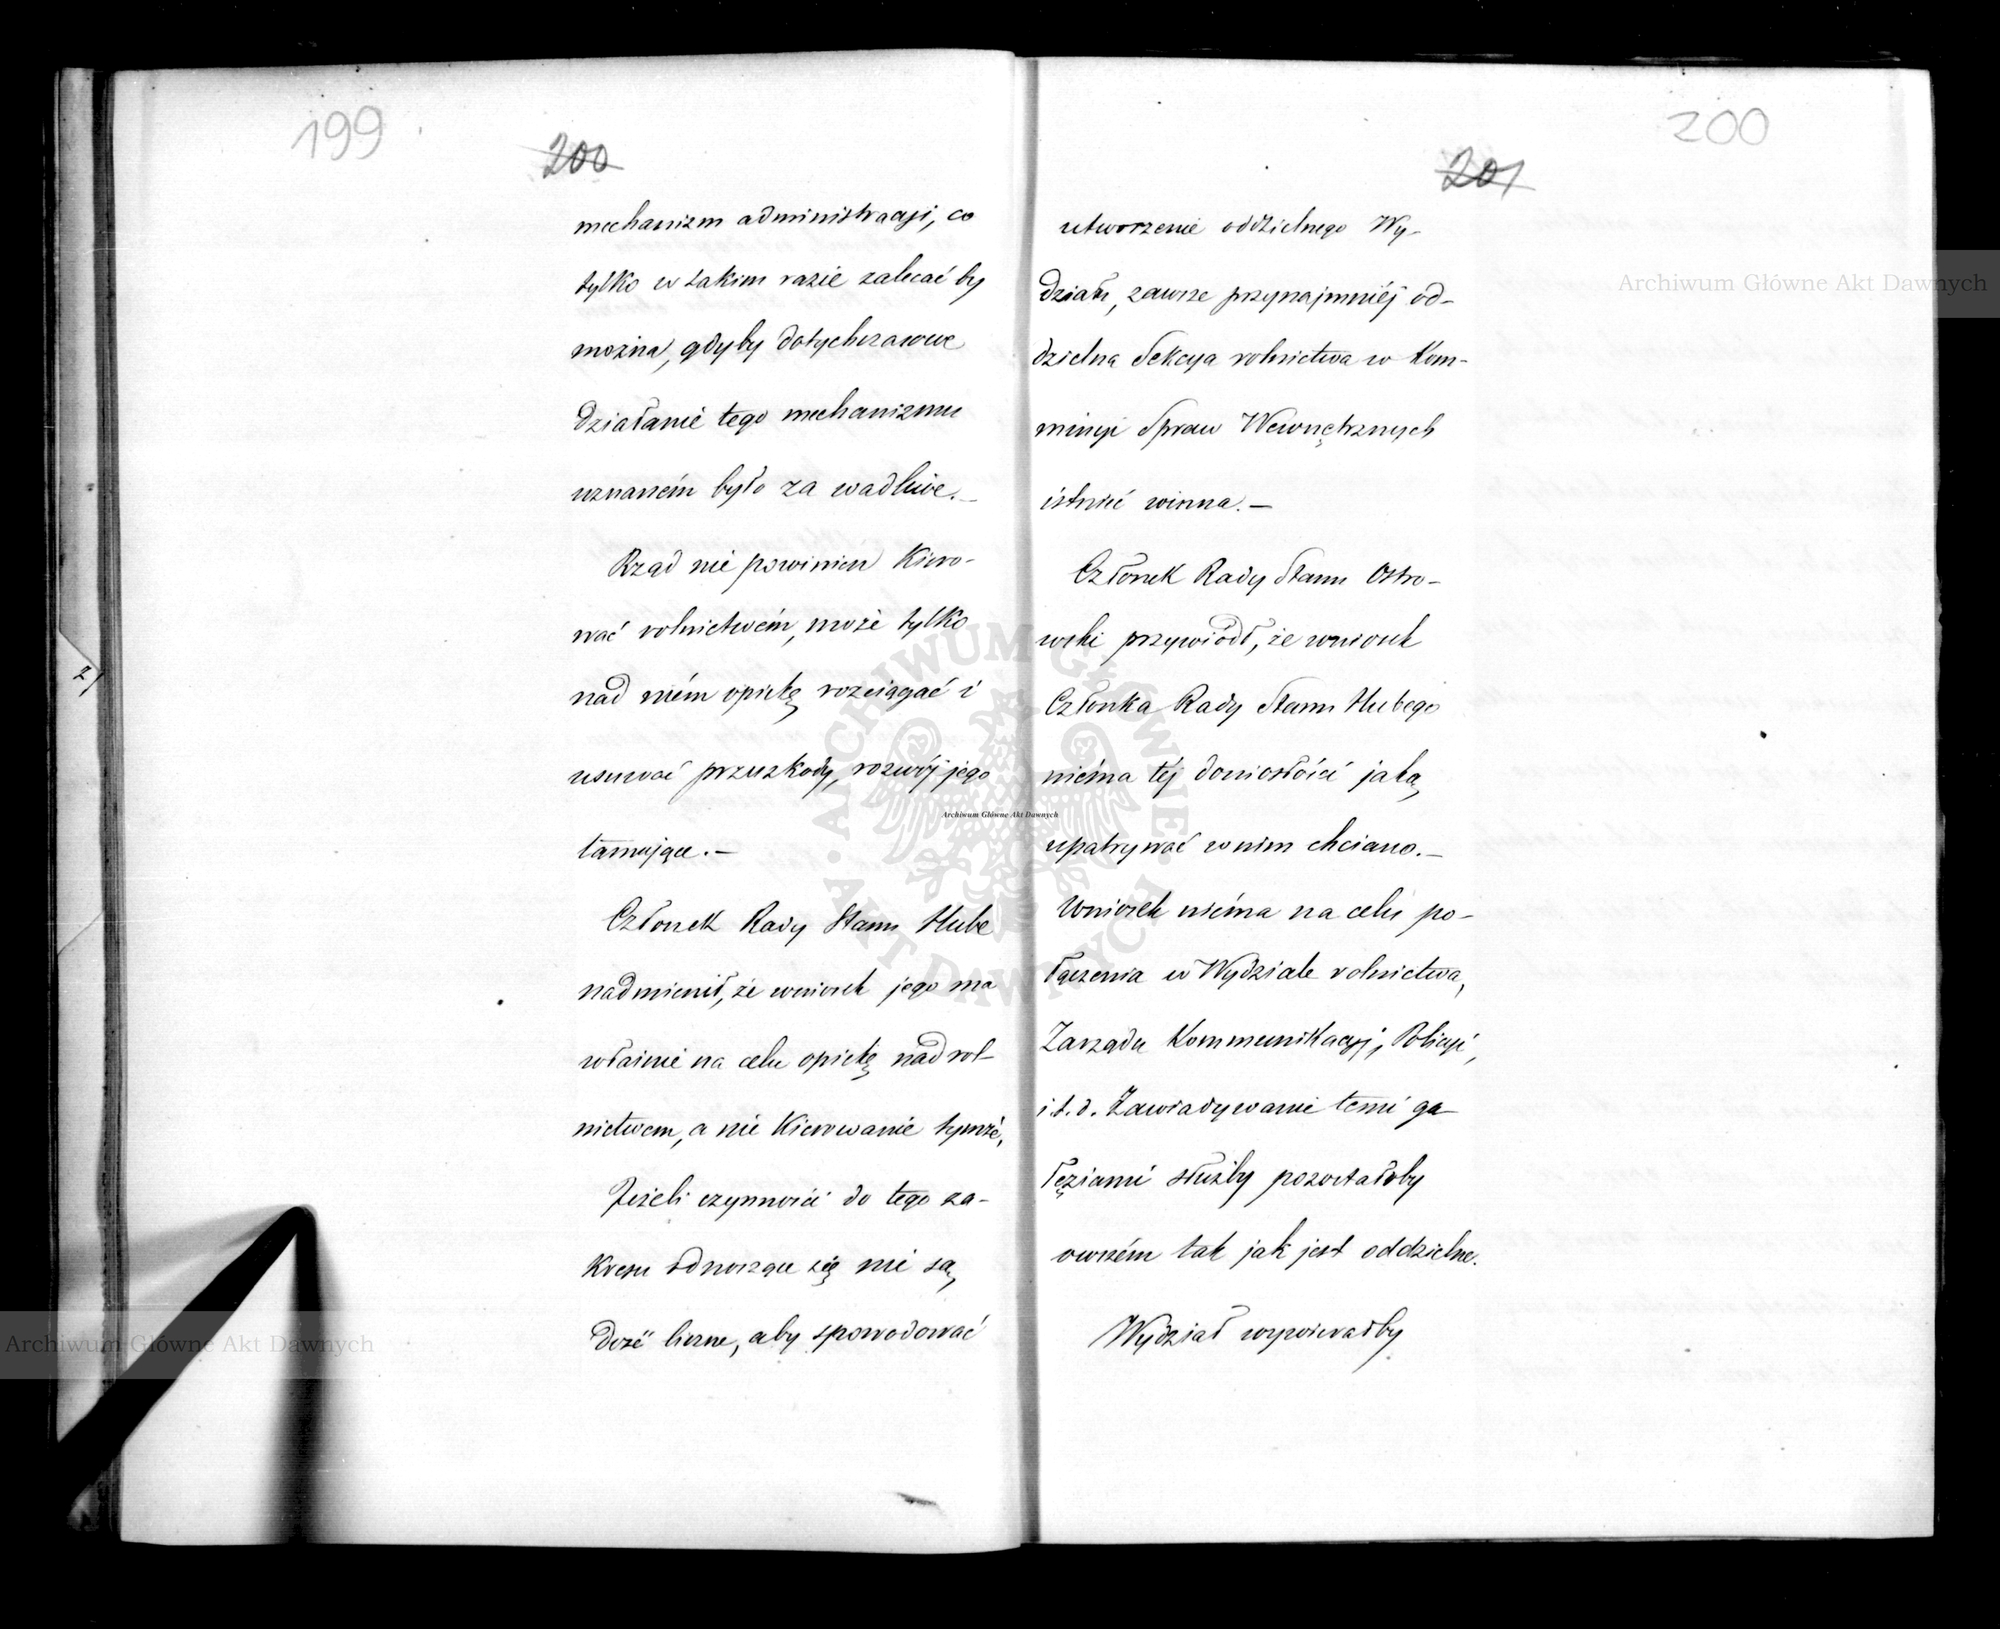 199
200
mechanizm administracyi, co
tylko w takim razie zalecać by
można, gdyby dotychczasowe
działanie tego mechanizmu
uznaném było za wadliwe. _
Rząd nie powinien kiero-
wać rolnictwém, może tylko
nad niém opiekę rozciągać i
usuwać przeszkody, rozwój jego
tamujące. —
Członek Rady Stanu Hube
nadmienił, że wniosek jego ma
właśnie na celu opiekę nad rol-
nictwem, a nie kierowanie tymże,
Jeżeli czynności do tego za-
kresu odnoszące się nie są,
dość liczne, aby spowodować
200
201
utworzenie oddzielnego Wy-
działu, zawsze przynajmniéj od-
dzielna Sekcya rolnictwa w Kom-
missyi Spraw Wewnętrznych
istnieć winna. —
Członek Rady Stanu Ostro-
wski przywiódł, że wniosek
Członka Rady Stanu Hubego
niéma téj doniosłości jaką
upatrywać w nim chciano. —
Wniosek niéma na celu po-
łączenia w Wydziale rolnictwa,
Zarządu Kommunikacyj, Policyi,
i t. d. Zawiadywanie temi ga-
łęziami służby pozostałoby
owszém tak jak jest oddzielne.
Wydział wywierałby
2)
Archiwum Główne Akt Dawnych
Archiwum Główne Akt Dawnych
Archiwum Główne Akt Dawnych
ARCHIWUM GŁÓWNE · AKT DAWNYCH ·